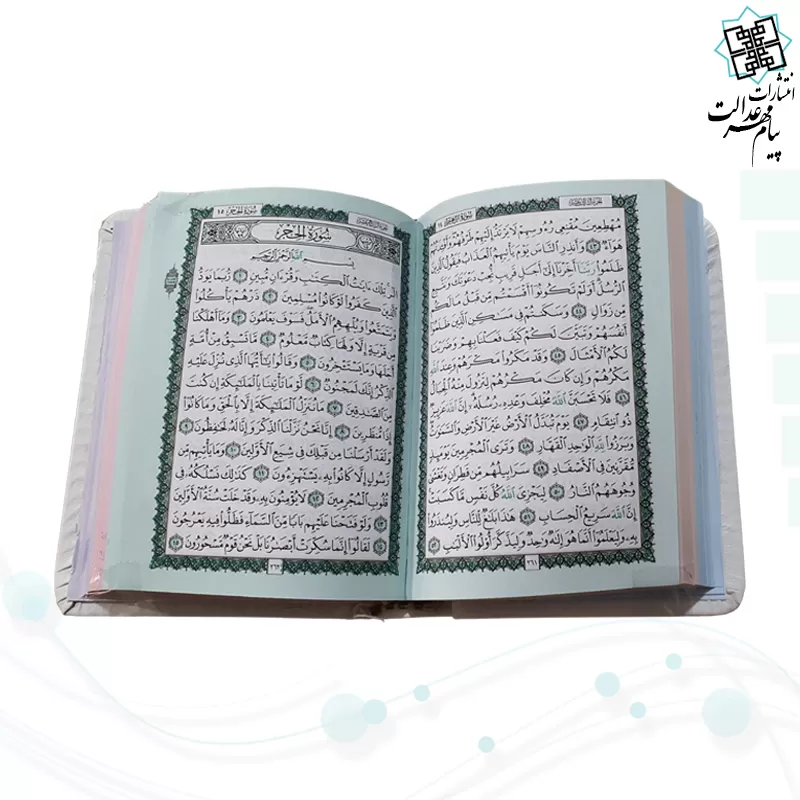 انتشارات
پیام مهر عدالت
سُورَةُ إِبْرَاهِيم ١٤
مُهْطِعِينَ مُقْنِعِى رُءُوسِهِمْ لَا يَرْتَدُّ إِلَيْهِمْ طَرْفُهُمْ وَأَفْـِٔدَتُهُمْ
هَوَآءٌ ٤٣ وَأَنذِرِ ٱلنَّاسَ يَوْمَ يَأْتِيهِمُ ٱلْعَذَابُ فَيَقُولُ ٱلَّذِينَ
ظَلَمُوا۟ رَبَّنَآ أَخِّرْنَآ إِلَىٰٓ أَجَلٍ قَرِيبٍ نُّجِبْ دَعْوَتَكَ وَنَتَّبِعِ
ٱلرُّسُلَ أَوَلَمْ تَكُونُوٓا۟ أَقْسَمْتُم مِّن قَبْلُ مَا لَكُم
مِّن زَوَالٍ ٤٤ وَسَكَنتُمْ فِى مَسَـٰكِنِ ٱلَّذِينَ ظَلَمُوٓا۟
أَنفُسَهُمْ وَتَبَيَّنَ لَكُمْ كَيْفَ فَعَلْنَا بِهِمْ وَضَرَبْنَا
لَكُمُ ٱلْأَمْثَالَ ٤٥ وَقَدْ مَكَرُوا۟ مَكْرَهُمْ وَعِندَ ٱللَّهِ
مَكْرُهُمْ وَإِن كَانَ مَكْرُهُمْ لِتَزُولَ مِنْهُ ٱلْجِبَالُ
٤٦ فَلَا تَحْسَبَنَّ ٱللَّهَ مُخْلِفَ وَعْدِهِۦ رُسُلَهُۥٓ إِنَّ ٱللَّهَ عَزِيزٌ
ذُو ٱنتِقَامٍ ٤٧ يَوْمَ تُبَدَّلُ ٱلْأَرْضُ غَيْرَ ٱلْأَرْضِ وَٱلسَّمَـٰوَٰتُ
وَبَرَزُوا۟ لِلَّهِ ٱلْوَٰحِدِ ٱلْقَهَّارِ ٤٨ وَتَرَى ٱلْمُجْرِمِينَ يَوْمَئِذٍ
مُّقَرَّنِينَ فِى ٱلْأَصْفَادِ ٤٩ سَرَابِيلُهُم مِّن قَطِرَانٍ وَتَغْشَىٰ
وُجُوهَهُمُ ٱلنَّارُ ٥٠ لِيَجْزِىَ ٱللَّهُ كُلَّ نَفْسٍ مَّا كَسَبَتْ
إِنَّ ٱللَّهَ سَرِيعُ ٱلْحِسَابِ ٥١ هَـٰذَا بَلَـٰغٌ لِّلنَّاسِ وَلِيُنذَرُوا۟
بِهِۦ وَلِيَعْلَمُوٓا۟ أَنَّمَا هُوَ إِلَـٰهٌ وَٰحِدٌ وَلِيَذَّكَّرَ أُو۟لُوا۟ ٱلْأَلْبَـٰبِ ٥٢
٢٦١
سُورَةُ الحِجْر ١٥
سُورَةُ الحِجْرِ
بِسْمِ ٱللَّهِ ٱلرَّحْمَـٰنِ ٱلرَّحِيمِ
الٓر تِلْكَ ءَايَـٰتُ ٱلْكِتَـٰبِ وَقُرْءَانٍ مُّبِينٍ ١ رُّبَمَا يَوَدُّ
ٱلَّذِينَ كَفَرُوا۟ لَوْ كَانُوا۟ مُسْلِمِينَ ٢ ذَرْهُمْ يَأْكُلُوا۟
وَيَتَمَتَّعُوا۟ وَيُلْهِهِمُ ٱلْأَمَلُ فَسَوْفَ يَعْلَمُونَ ٣ وَمَآ أَهْلَكْنَا
مِن قَرْيَةٍ إِلَّا وَلَهَا كِتَابٌ مَّعْلُومٌ ٤ مَّا تَسْبِقُ مِنْ أُمَّةٍ
أَجَلَهَا وَمَا يَسْتَـْٔخِرُونَ ٥ وَقَالُوا۟ يَـٰٓأَيُّهَا ٱلَّذِى نُزِّلَ عَلَيْهِ
ٱلذِّكْرُ إِنَّكَ لَمَجْنُونٌ ٦ لَّوْ مَا تَأْتِينَا بِٱلْمَلَـٰٓئِكَةِ إِن كُنتَ
مِنَ ٱلصَّـٰدِقِينَ ٧ مَا نُنَزِّلُ ٱلْمَلَـٰٓئِكَةَ إِلَّا بِٱلْحَقِّ وَمَا كَانُوٓا۟
إِذًا مُّنظَرِينَ ٨ إِنَّا نَحْنُ نَزَّلْنَا ٱلذِّكْرَ وَإِنَّا لَهُۥ لَحَـٰفِظُونَ ٩
وَلَقَدْ أَرْسَلْنَا مِن قَبْلِكَ فِى شِيَعِ ٱلْأَوَّلِينَ ١٠ وَمَا يَأْتِيهِم مِّن
رَّسُولٍ إِلَّا كَانُوا۟ بِهِۦ يَسْتَهْزِءُونَ ١١ كَذَٰلِكَ نَسْلُكُهُۥ فِى
قُلُوبِ ٱلْمُجْرِمِينَ ١٢ لَا يُؤْمِنُونَ بِهِۦ وَقَدْ خَلَتْ سُنَّةُ ٱلْأَوَّلِينَ
١٣ وَلَوْ فَتَحْنَا عَلَيْهِم بَابًا مِّنَ ٱلسَّمَآءِ فَظَلُّوا۟ فِيهِ يَعْرُجُونَ
١٤ لَقَالُوٓا۟ إِنَّمَا سُكِّرَتْ أَبْصَـٰرُنَا بَلْ نَحْنُ قَوْمٌ مَّسْحُورُونَ ١٥
٢٦٢